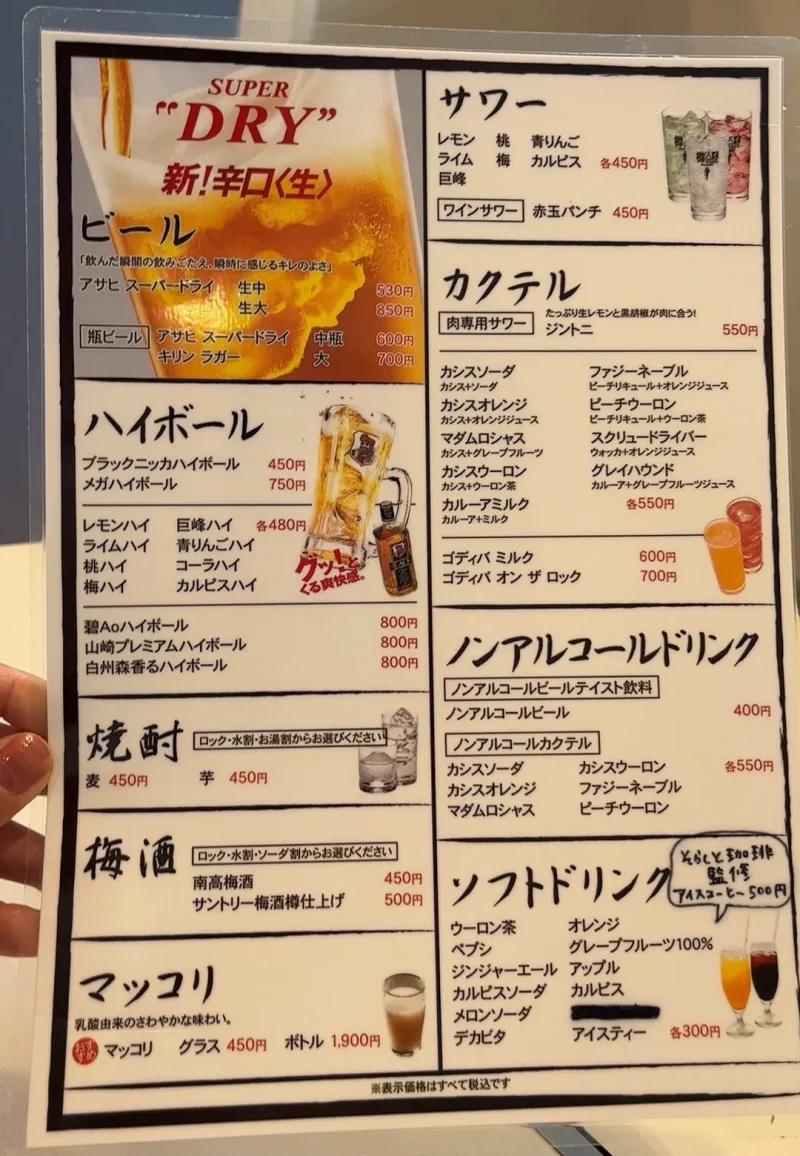 SUPER
"DRY"
新!辛口〈生〉
ビール
「飲んだ瞬間の飲みごたえ、瞬時に感じるキレのよさ」
アサヒ スーパードライ 生中 530円
生大 850円
瓶ビール アサヒ スーパードライ 中瓶 600円
キリン ラガー 大 700円
ハイボール
ブラックニッカハイボール 450円
メガハイボール 750円
レモンハイ 巨峰ハイ 各480円
ライムハイ 青りんごハイ
桃ハイ コーラハイ
梅ハイ カルピスハイ
グッ!と
くる爽快感。
碧Aoハイボール 800円
山崎プレミアムハイボール 800円
白州森香るハイボール 800円
焼酎 ロック・水割・お湯割からお選びください
麦 450円 芋 450円
梅酒 ロック・水割・ソーダ割からお選びください
南高梅酒 450円
サントリー梅酒樽仕上げ 500円
マッコリ
乳酸由来のさわやかな味わい。
おすすめ マッコリ グラス 450円 ボトル 1,900円
サワー
レモン 桃 青りんご
ライム 梅 カルピス 各450円
巨峰
ワインサワー 赤玉パンチ 450円
カクテル
肉専用サワー たっぷり生レモンと黒胡椒が肉に合う!
ジントニ 550円
カシスソーダ ファジーネーブル
カシス+ソーダ ピーチリキュール+オレンジジュース
カシスオレンジ ピーチウーロン
カシス+オレンジジュース ピーチリキュール+ウーロン茶
マダムロシャス スクリュードライバー
カシス+グレープフルーツ ウォッカ+オレンジジュース
カシスウーロン グレイハウンド
カシス+ウーロン茶 カルーア+グレープフルーツジュース
カルーアミルク 各550円
カルーア+ミルク
ゴディバ ミルク 600円
ゴディバ オン ザ ロック 700円
ノンアルコールドリンク
ノンアルコールビールテイスト飲料
ノンアルコールビール 400円
ノンアルコールカクテル
カシスソーダ カシスウーロン 各550円
カシスオレンジ ファジーネーブル
マダムロシャス ピーチウーロン
ソフトドリンク
そらしと珈琲
監修
アイスコーヒー500円
ウーロン茶 オレンジ
ペプシ グレープフルーツ100%
ジンジャーエール アップル
カルピスソーダ カルピス
メロンソーダ
デカビタ アイスティー 各300円
※表示価格はすべて税込です